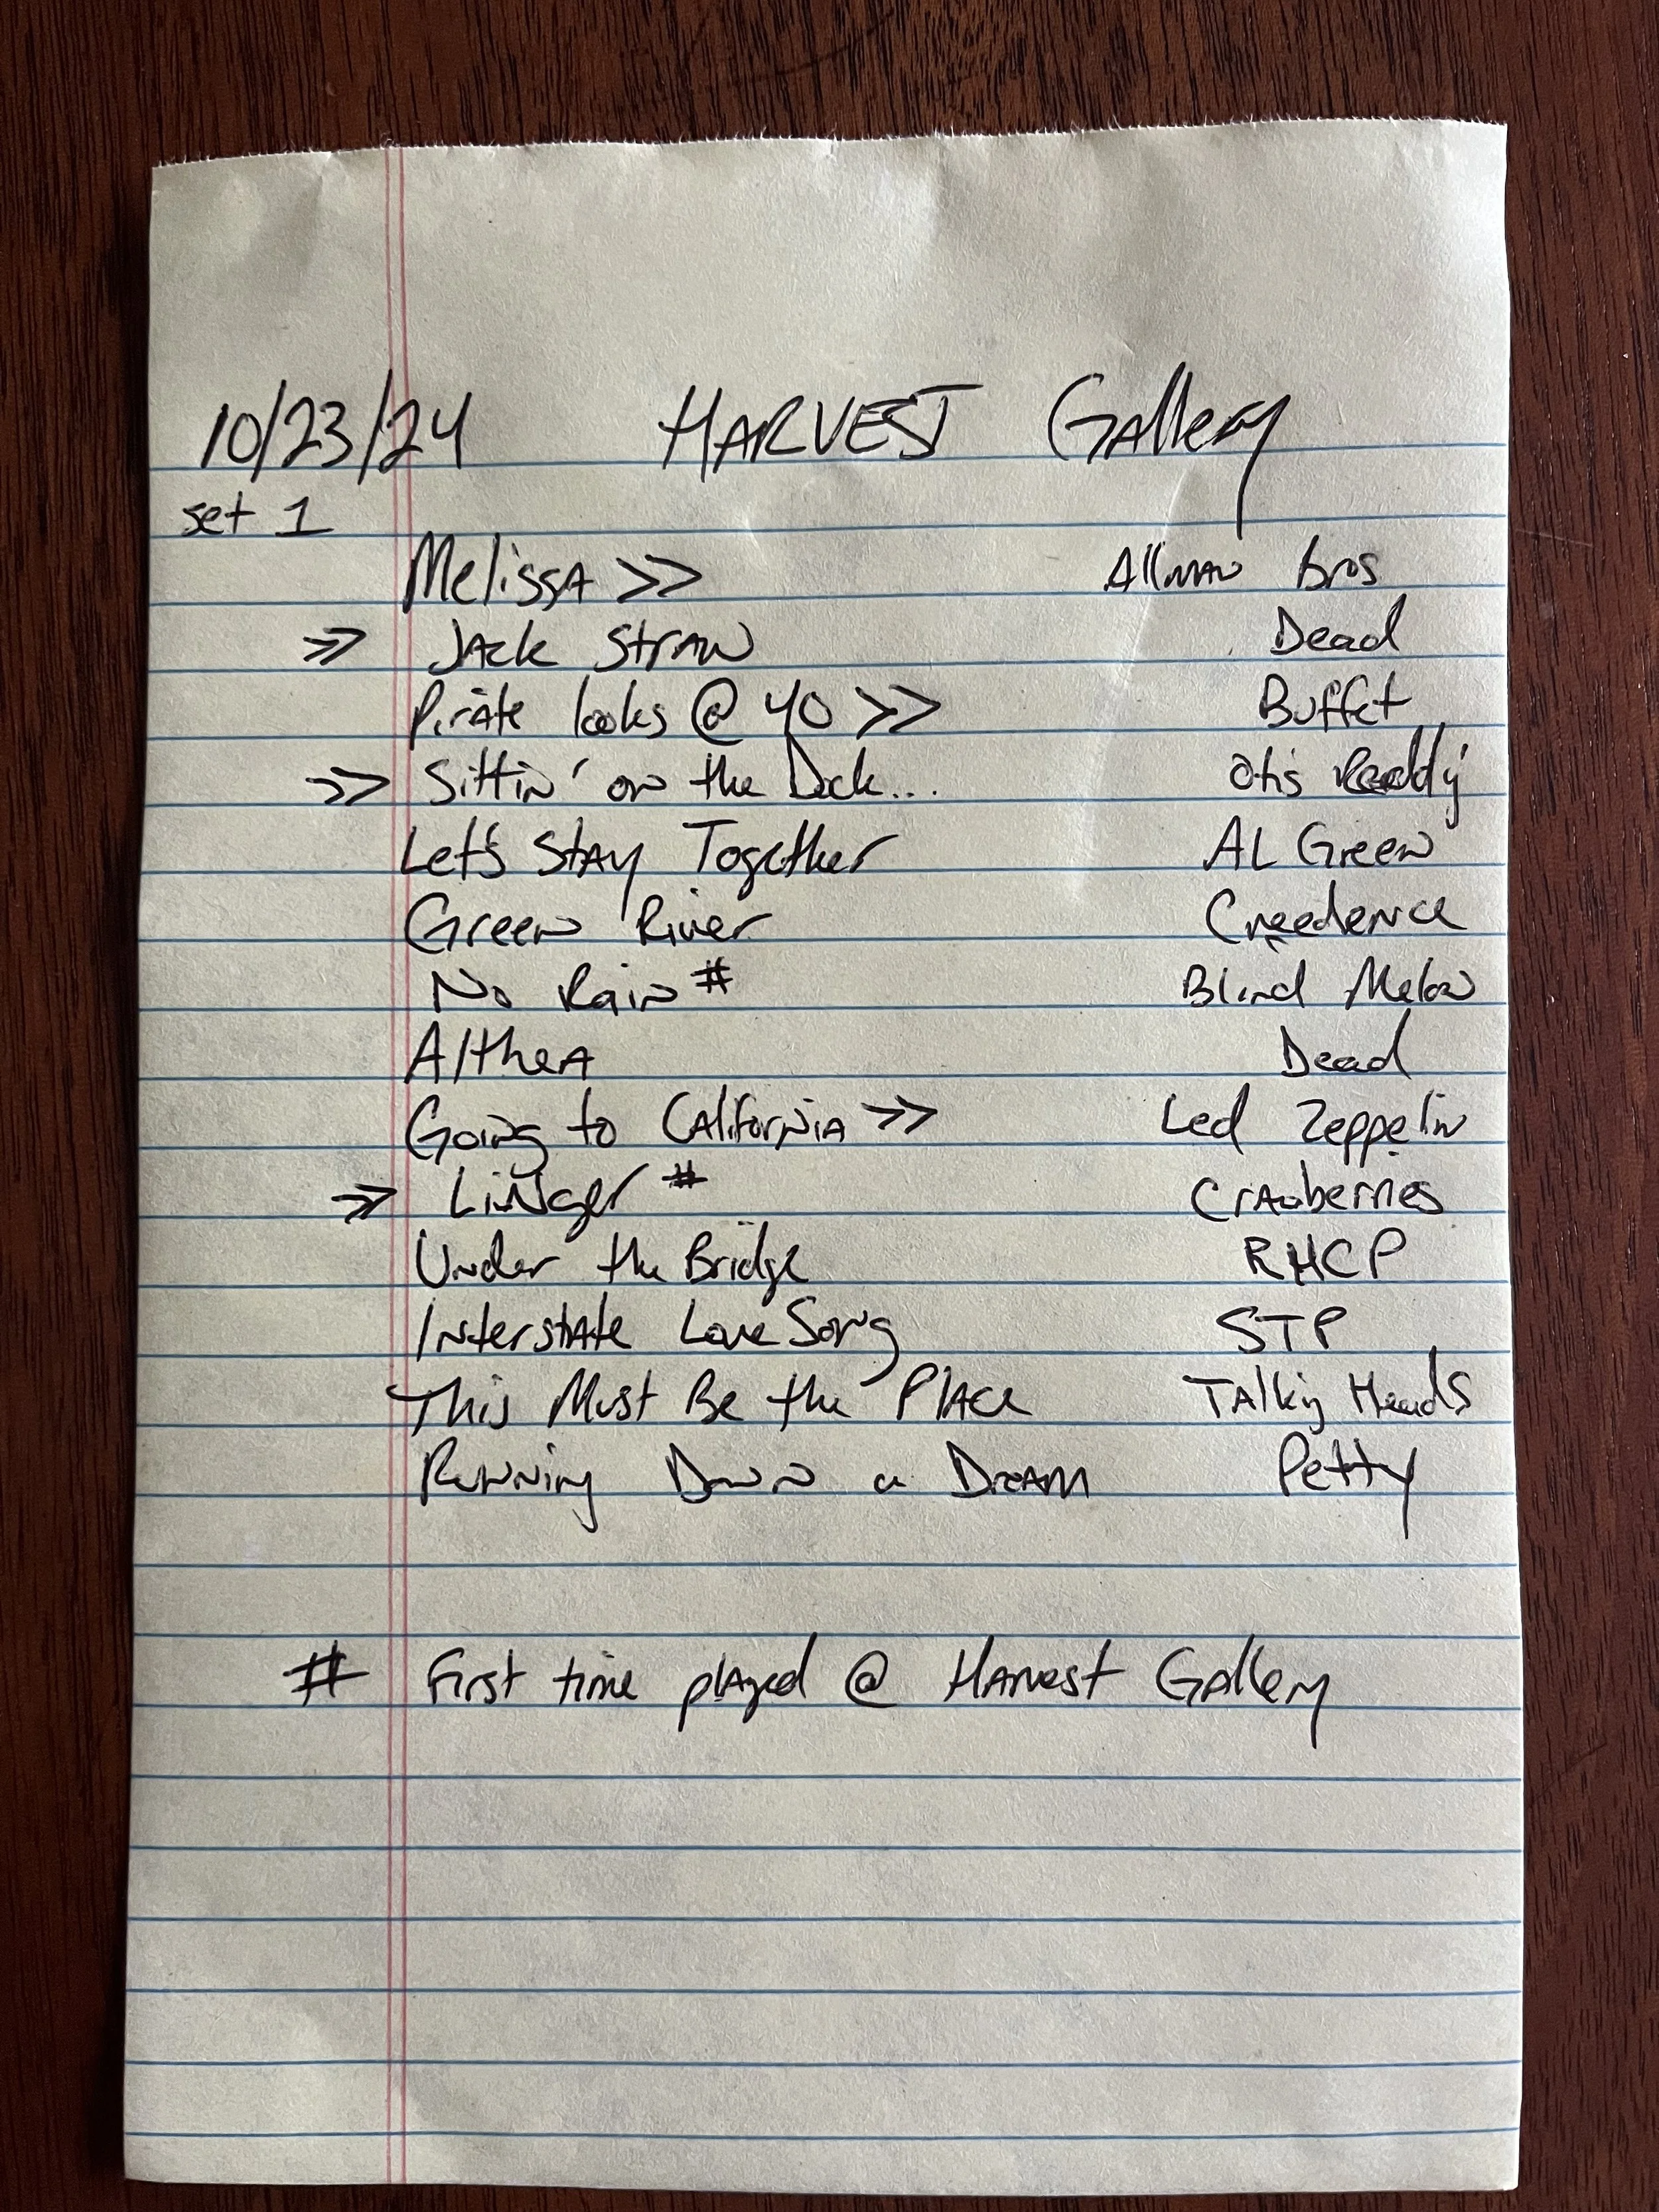 10/23/24 HARVEST Gallery
set 1
Melissa >> Allman bros
>> Jack Straw Dead
Pirate looks @ 40 >> Buffet
>> Sittin' on the Dock... Otis
Let's Stay Together AL Green
Green River Creedence
No Rain # Blind Melon
Althea Dead
Going to California >> Led Zeppelin
>> Linger # Cranberries
Under the Bridge RHCP
Interstate Love Song STP
This Must Be the Place Talking Heads
Running Down a Dream Petty
# First time played @ Harvest Gallery